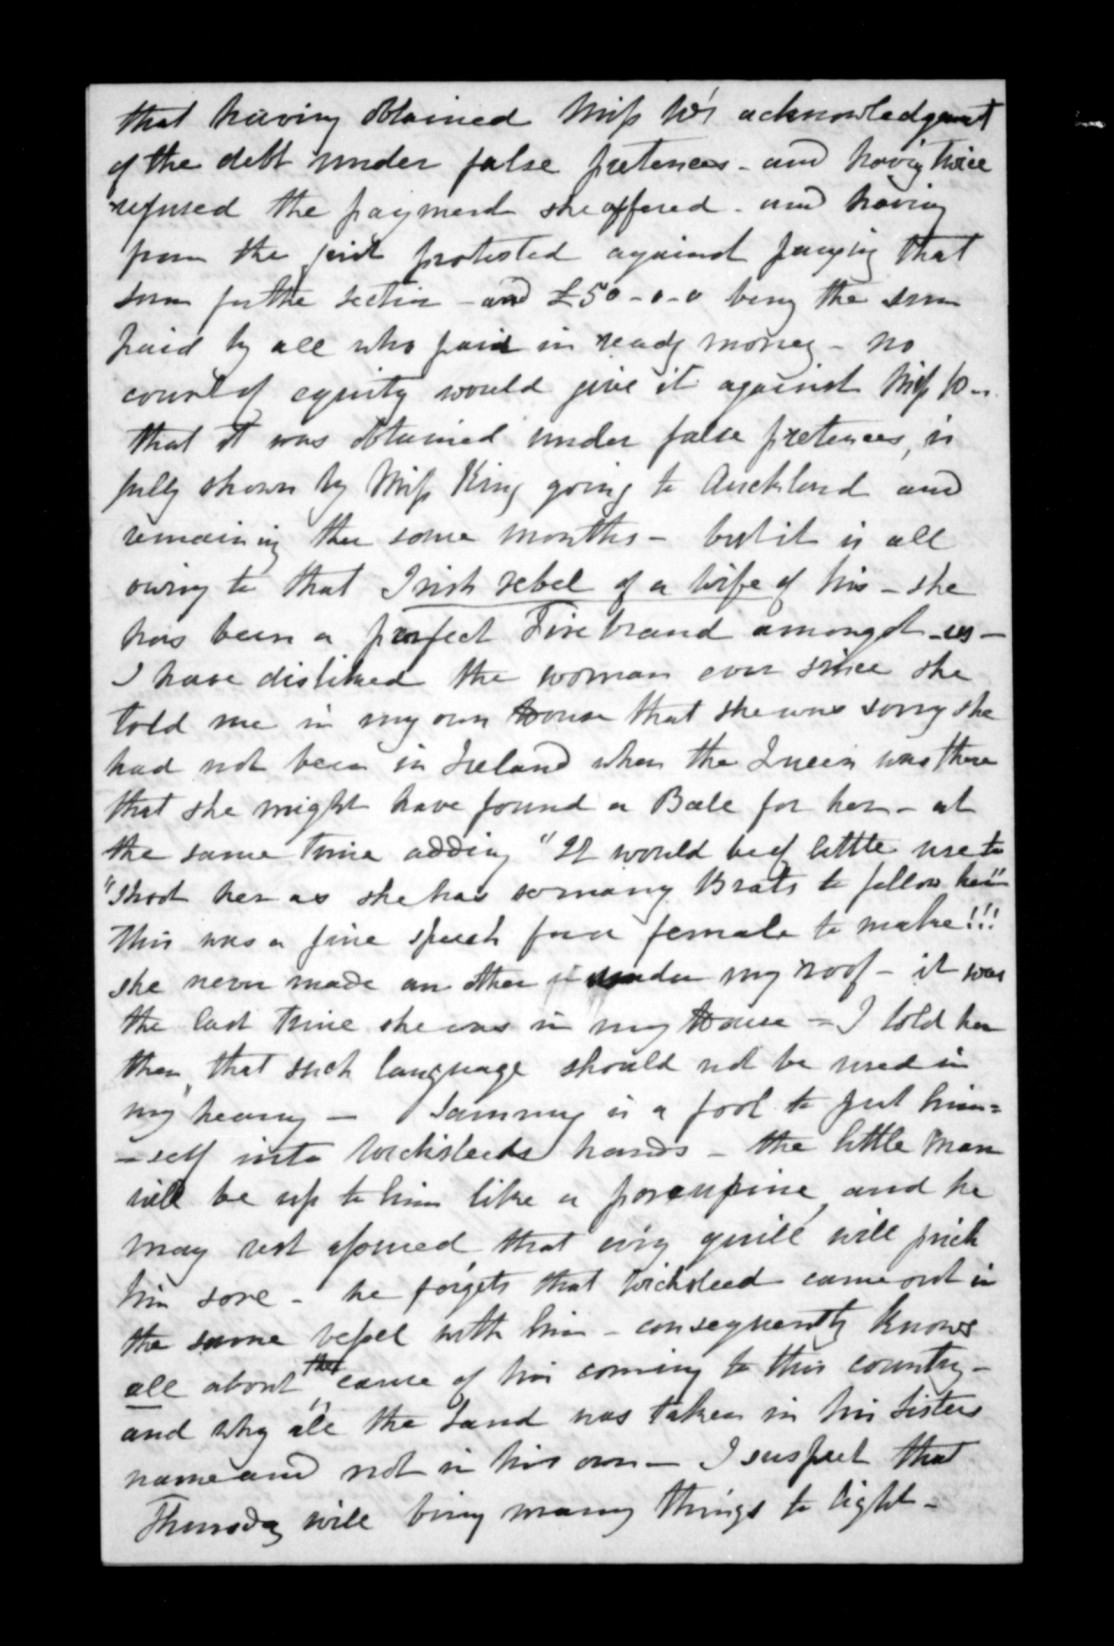 that having obtained Miss W's acknowledgment
of the debt under false pretences - and having twice
refused the payment she offered - and having
from the first protested against paying that
sum for the section - and £50-0-0 being the sum
paid by all who paid in ready money - no
court of equity would give it against Miss W -
that it was obtained under false pretences, is
fully shown by Miss King going to Auckland and
remaining there some months - but it is all
owing to that Irish rebel of a wife of his - she
has been a perfect Firebrand amongst us -
I have disliked the woman ever since she
told me in my own House that she was sorry she
had not been in Ireland when the Queen was there
that she might have found a Ball for her - at
the same time adding "It would be of little use to
"shoot her as she has so many Brats to follow her"
This was a fine speech for a female to make!!!
she never made an other under my roof - it was
the last time she was in my House = I told her
then, that such language should not be used in
my hearing - Sammy is a fool to put him=
-self into Wicksteeds hands - the little man
will be up to him like a porcupine, and he
may rest assured that every quill will prick
him sore - he forgets that Wicksteed came out in
the same vessel with him - consequently knows
all about the cause of his coming to this country -
and why all the Land was taken in his sisters
name and not in his own - I suspect that
Thursday will bring many things to light -